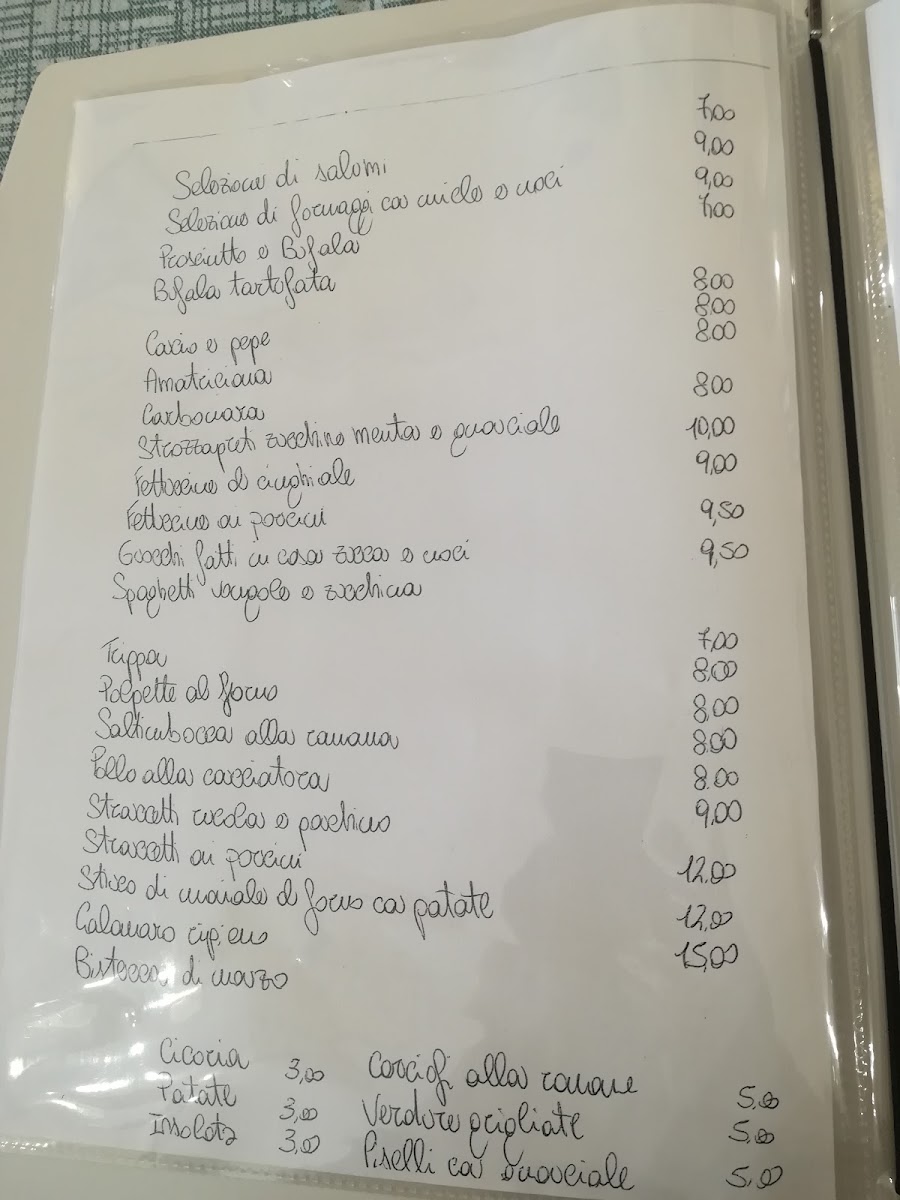 Selezione di salumi 7,00
Selezione di formaggi con miele e noci 9,00
Prosciutto e Bufala 9,00
Bufala tartufata 7,00
Cacio e pepe 8,00
Amatriciana 8,00
Carbonara 8,00
Strozzapreti zucchine menta e guanciale 8,00
Fettuccine al cinghiale 10,00
Fettuccine ai porcini 9,00
Gnocchi fatti in casa zucca e noci 9,50
Spaghetti vongole e zucchina 9,50
Trippa 7,00
Polpette al forno 8,00
Saltimbocca alla romana 8,00
Pollo alla cacciatora 8,00
Straccetti rucola e pachino 8.00
Straccetti ai porcini 9,00
Stinco di maiale al forno con patate 12,00
Calamaro ripieno 12,00
Bistecca di manzo 15,00
Cicoria 3,00 Carciofi alla romana 5,00
Patate 3,00 Verdure grigliate 5,00
Insalata 3,00 Piselli con guanciale 5,00